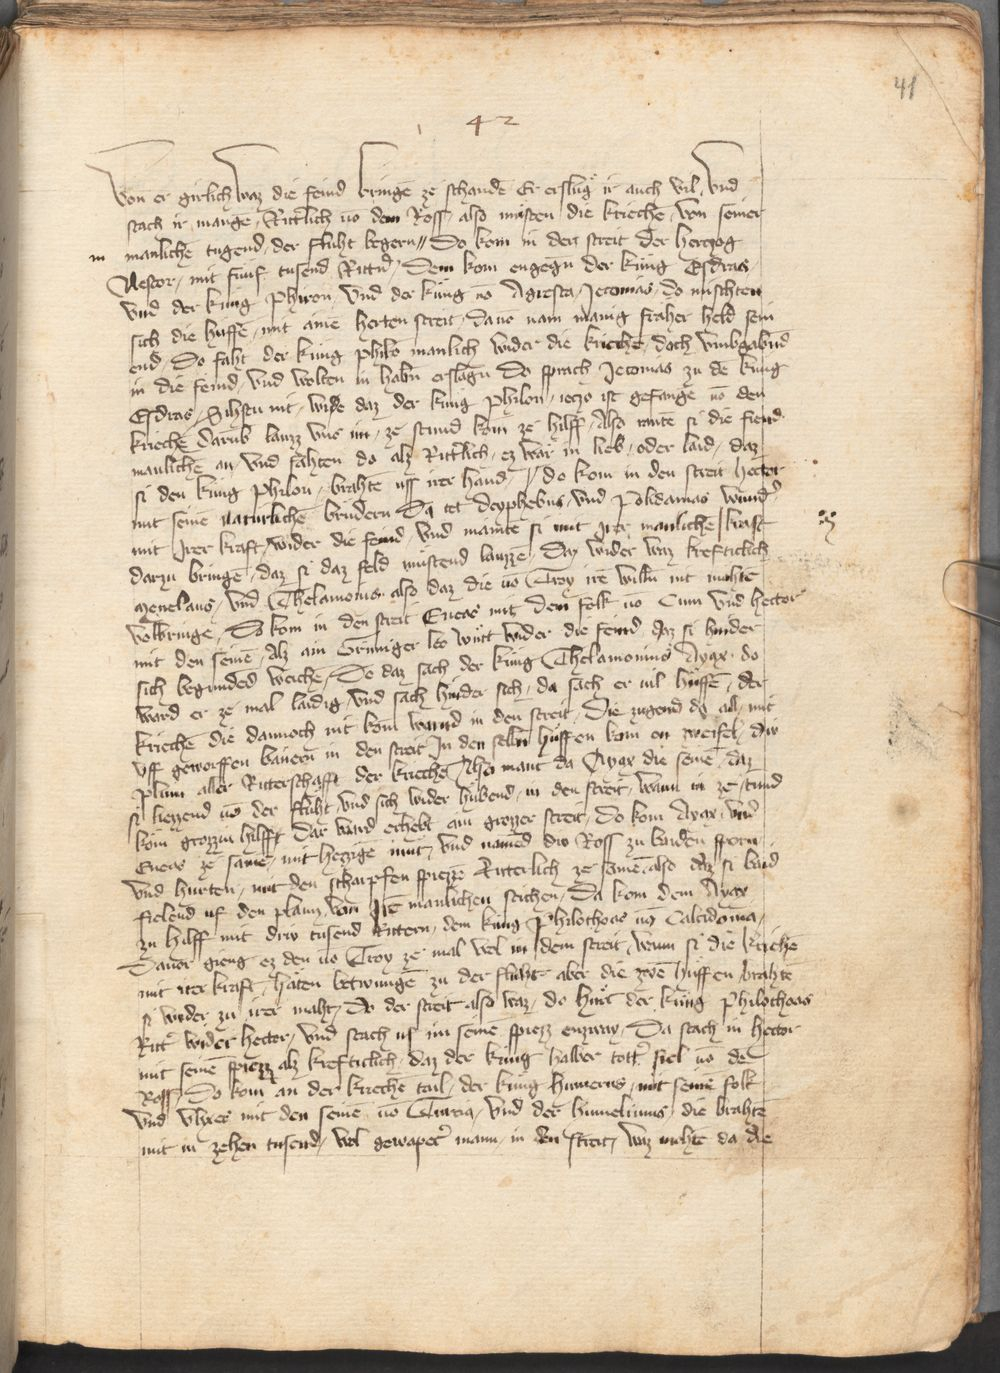 41
42
Von er girlich waz die feind bringē ze schandē Er erslůg ir auch vil, Vnd
stach ir mangē, Rittlich vō dem Ross, also můsten die kriechē, von seiner
in manlichē tugend, der flucht begern // Do kom in den streit der herczog
Nestor, mit funf tusend Rittn̄, Dem kom engegn der kůng Esdras,
vnd der kůng phiron, Vnd der kůng vō Agresta, Jecomas, do muschten
sich die hůffē, mit ainē herten streit, dauo nam manig fraher held sein
end, Do faht der kůng philo manlich wider die kriechē, doch vmbgabnd
in die feind, vnd wolten in habn erslagn Do sprach Jecomas zu dē kůng
Esdras, Sihstu nit, wie daz der kůng philon, iecz ist gefangē vō den
kriechē darūb lauzz vns im, ze stund kom ze hilff, Also rantē si die fiend
manlichē an, vnd fahten do alz Rittlich, ez wär in lieb, oder laid, daz
si den kůng philon, brahtē uss irer hand, // do kom in den streit hector
mit seinē naturlichē brudern Da tet deyphebus, vnd Polidamas wund
mit Jrer kraft, wider die feind, vnd mainte si mit Jrer manlichē kraft
darzu bringē, daz si daz feld můstend lauzzē, Day wider waz kreftichlich
Menelaus, vnd Thelamonius also daz die vō Troy irē willn nit mohtē
volbringē, Do kom in den streit Eneas mit dem folk vō Cum vnd hector
mit den seinē, Alz ain Grimiger leo wůtt wider die feind daz si hinder
sich begunded weichē, Do daz sach der kůng Thelamonius Ayax, do
ward er ze mal laidig, vnd sach hinder sich, da sach er vil hůffē, der
kriechē die dannoch nit kom warnd in den streit, Die zugend do all, mit
vff geworffen banern in den streit In den selbn hůffen kom on zweifel, diu
plům aller Ritterschafft der kriechē Also mant da Ayax die seinē, daz
si liezzend vō der flucht, vnd sich wider hůbend, in den streit, wann in ze stund
kom grozzin hilfft dar ward erhebt ain grozzer streit, Do kom Ayax, vnd
Eneas ze samē, mit hezzigē mut, vnd namēd diu Ross zu baiden sporn
vnd hurten, mit den scharpfen spiezzē Ritterlich ze samē also daz si baid
fielend uf den plann, von Jrē manlichen stichen, Da kom dem Ayax,
zu hilff mit driu tusend Rittern, dem kůng Philothoas vō Calcidonia,
Dauor gieng ez den vō Troy ze mal wol in dem streit, wenn si die kriechē
mit irer kraft, häten betwungē zu der flucht, aber die zwē hůffen brahtē
si wider zu irer maht, Do der streit also waz, do hurt der kůng Philothoas
Ritt wider hector, vnd stach uf im seinē spiezz enzway, Da stach in hector
mit seinē spiezz alz kreftichlich, daz der kůng halber tott fiel vō dē
Ross, Do kom an der kriechē tail, der kůng humerus, mit seinē folk
vnd vlixes mit den seinē vō Turcia, vnd der himelinus, die brahtē
mit in zehen tusend, wol gewapet mann, in den streit, waz mohtē da die